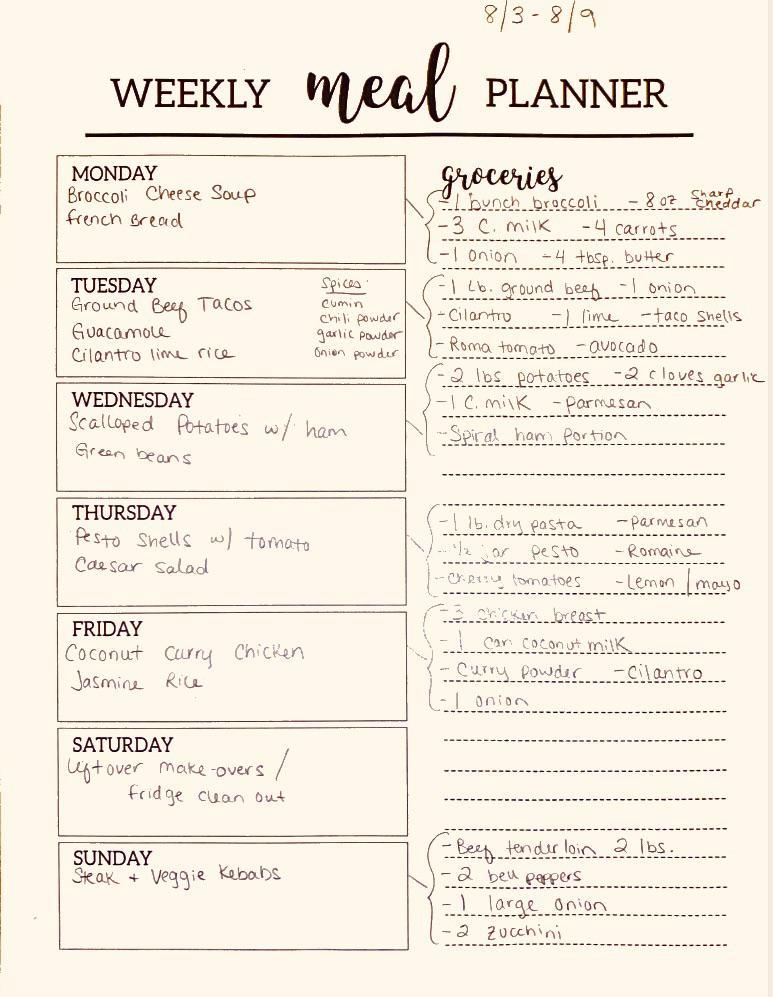 8/3 - 8/9
WEEKLY meal PLANNER
MONDAY
Broccoli Cheese Soup
French Bread
TUESDAY
Ground Beef Tacos
Guacamole
Cilantro lime rice
Spices:
cumin
chili powder
garlic powder
onion powder
WEDNESDAY
Scalloped Potatoes w/ ham
Green beans
THURSDAY
Pesto Shells w/ tomato
Caesar Salad
FRIDAY
Coconut Curry Chicken
Jasmine Rice
SATURDAY
Leftover make-overs /
Fridge clean out
SUNDAY
Steak + Veggie Kebabs
groceries
-1 bunch broccoli -8oz Sharp cheddar
-3 C. milk -4 carrots
-1 onion -4 tbsp. butter
-1 Lb. ground beef -1 onion
-Cilantro -1 lime -taco shells
-Roma tomato -avocado
-2 lbs potatoes -2 cloves garlic
-1 C. milk -Parmesan
-Spiral ham portion
-1 lb. dry pasta -Parmesan
-1/2 jar pesto -Romaine
-Cherry tomatoes -Lemon / mayo
-3 chicken breast
-1 can coconut milk
-Curry powder -Cilantro
-1 onion
-Beef tenderloin 2 lbs.
-2 bell peppers
-1 large onion
-2 zucchini